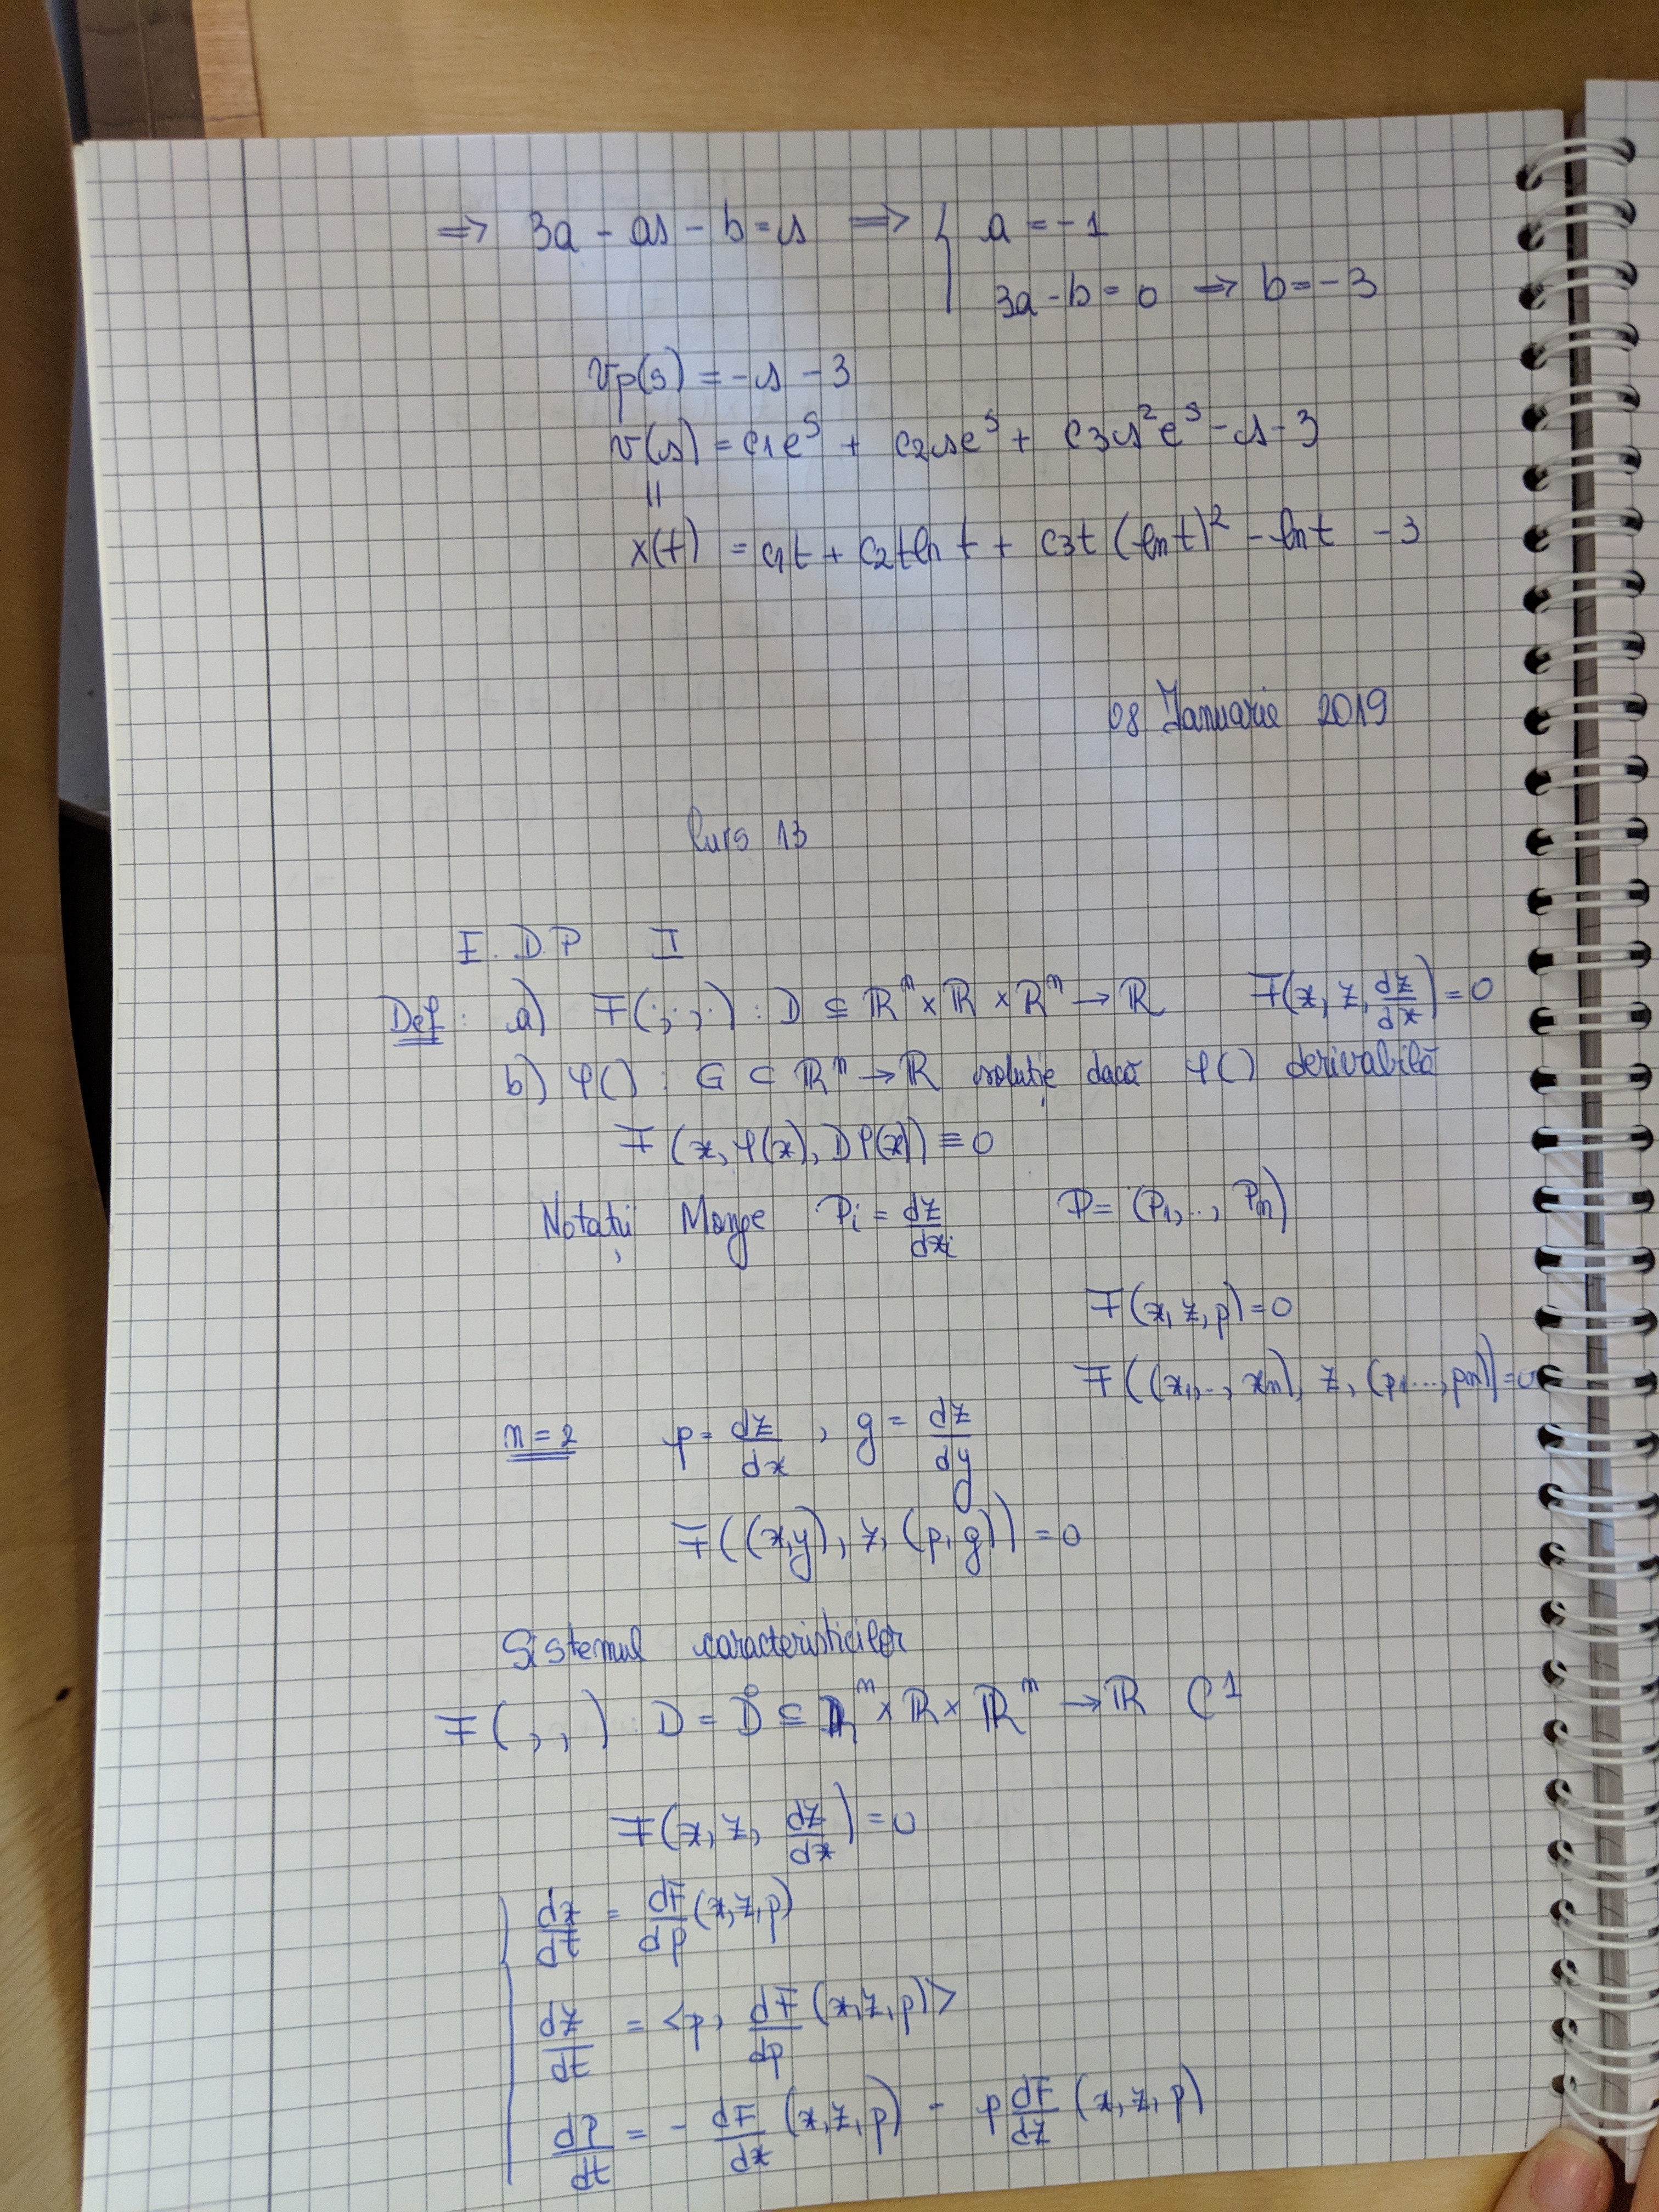 ⇒ 3a - as - b = s ⇒ { a = -1
3a - b = 0 ⇒ b = -3
vp(s) = -s - 3
v(s) = c1e^s + c2se^s + c3s^2e^s - s - 3
||
x(t) = c1t + c2tln t + c3t (ln t)^2 - ln t - 3
08 Ianuarie 2019
Curs 13
E.D.P I
Def: a) F(·,·,·) : D ⊆ ℝ^n × ℝ × ℝ^n → ℝ F(x, z, dz/dx) = 0
b) φ() : G ⊂ ℝ^n → ℝ soluție dacă φ() derivabilă
F (x, φ(x), Dφ(x)) ≡ 0
Notații Monge Pi = dz/dxi P = (P1,.., Pn)
F(x, z, p) = 0
F((x1,.., xn), z, (p1..., pn)) = 0
n = 2 p = dz/dx , g = dz/dy
F((x,y), z, (p, g)) = 0
Sistemul caracteristicilor
F( , , ) : D = D̊ ⊆ ℝ^n × ℝ × ℝ^n → ℝ C^1
F(x, z, dz/dx) = 0
dx/dt = dF/dp (x,z,p)
dz/dt = <p, dF/dp (x,z,p)>
dp/dt = - dF/dx (x,z,p) - p dF/dz (x, z, p)